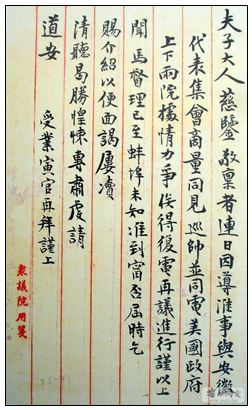 夫子大人慈鑒敬稟者連日因導淮事與安徽
代表集會商量同見巡帥並同電美國政府
上下兩院據情力爭俟得復電再議進行謹以上
聞馬督理已至蚌埠未知准到甯否屆時乞
賜介紹以便面謁屢瀆
清聽曷勝惶悚專肅虔請
道安
受業寅官再拜謹上
衆議院用箋